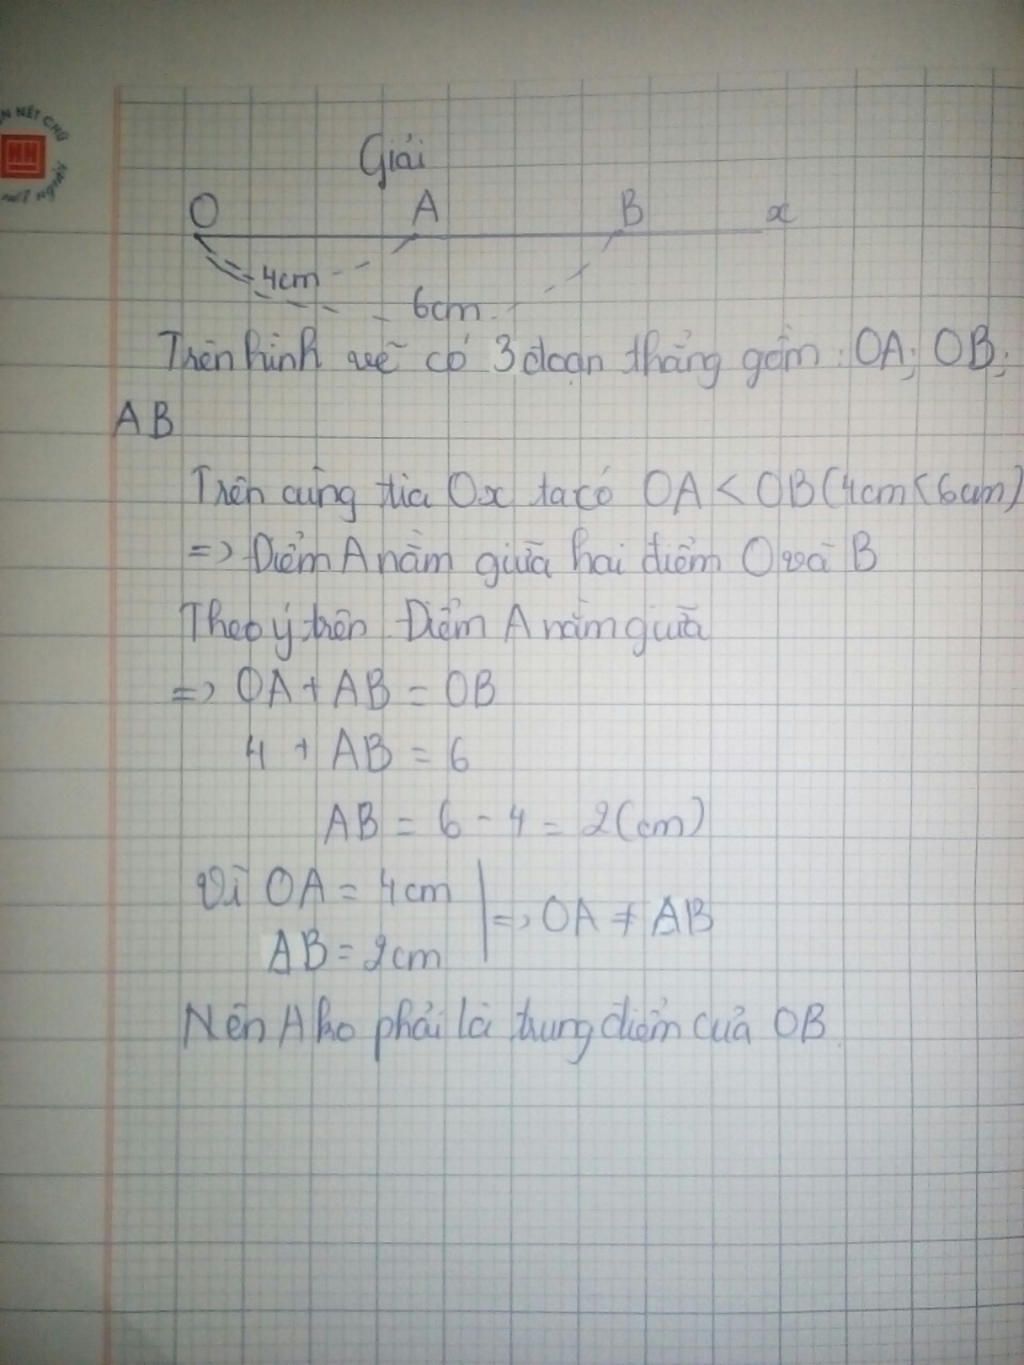 ÈN NÉT CHỮ
NGƯỜI
Giải
O A B x
4cm
6cm
Trên hình vẽ có 3 đoạn thẳng gồm: OA; OB;
AB
Trên cùng tia Ox ta có OA < OB (4cm < 6cm)
=> Điểm A nằm giữa hai điểm O và B
Theo ý trên Điểm A nằm giữa
=> OA + AB = OB
4 + AB = 6
AB = 6 - 4 = 2 (cm)
Vì OA = 4cm
=> OA ≠ AB
AB = 2cm
Nên A ko phải là trung điểm của OB.